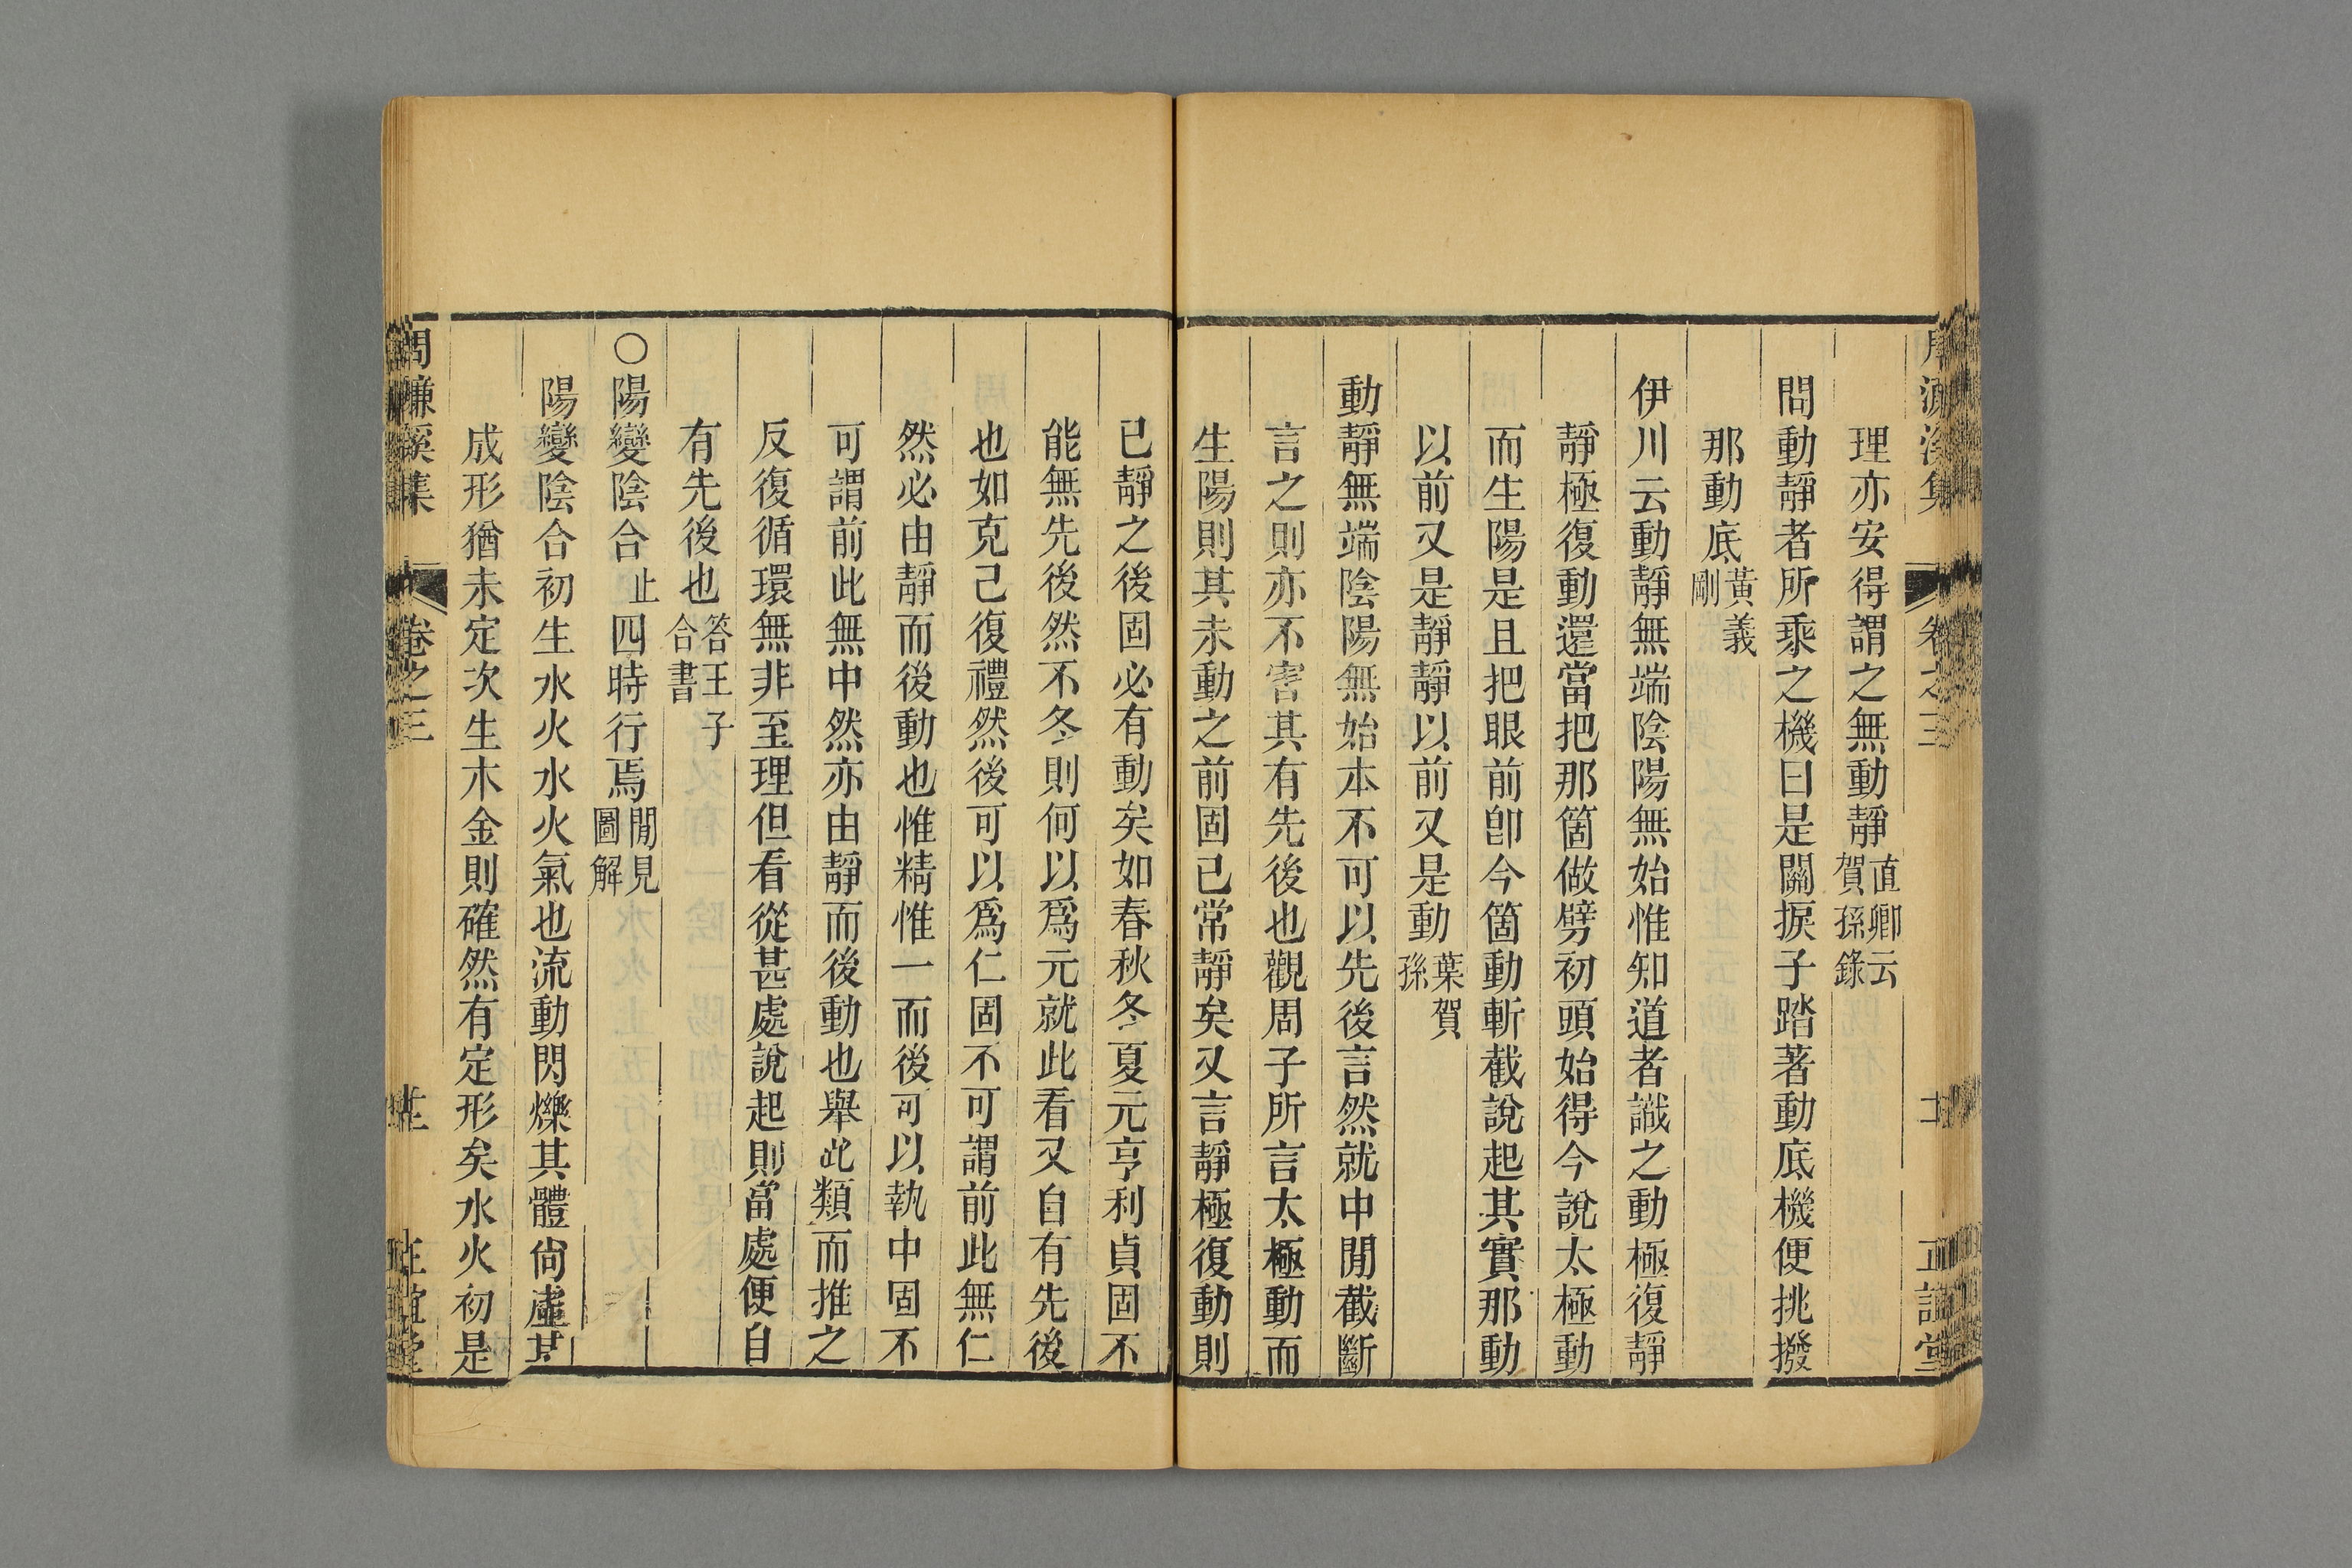 周濂溪集 卷之三 正誼堂
理亦安得謂之無動靜直卿云賀孫錄
問動靜者所乘之機曰是關捩子踏著動底機便挑撥
那動底黃義剛
伊川云動靜無端陰陽無始惟知道者識之動極復靜
靜極復動還當把那箇做劈初頭始得今說太極動
而生陽是且把眼前卽今箇動斬截說起其實那動
以前又是靜靜以前又是動葉賀孫
動靜無端陰陽無始本不可以先後言然就中閒截斷
言之則亦不害其有先後也觀周子所言太極動而
生陽則其未動之前固已常靜矣又言靜極復動則
已靜之後固必有動矣如春秋冬夏元亨利貞固不
能無先後然不冬則何以爲元就此看又自有先後
也如克己復禮然後可以爲仁固不可謂前此無仁
然必由靜而後動也惟精惟一而後可以執中固不
可謂前此無中然亦由靜而後動也舉此類而推之
反復循環無非至理但看從甚處說起則當處便自
有先後也答王子合書
○陽變陰合止四時行焉閒見圖解
陽變陰合初生水火水火氣也流動閃爍其體尙虛其
成形猶未定次生木金則確然有定形矣水火初是
周濂溪集 卷之三 正誼堂